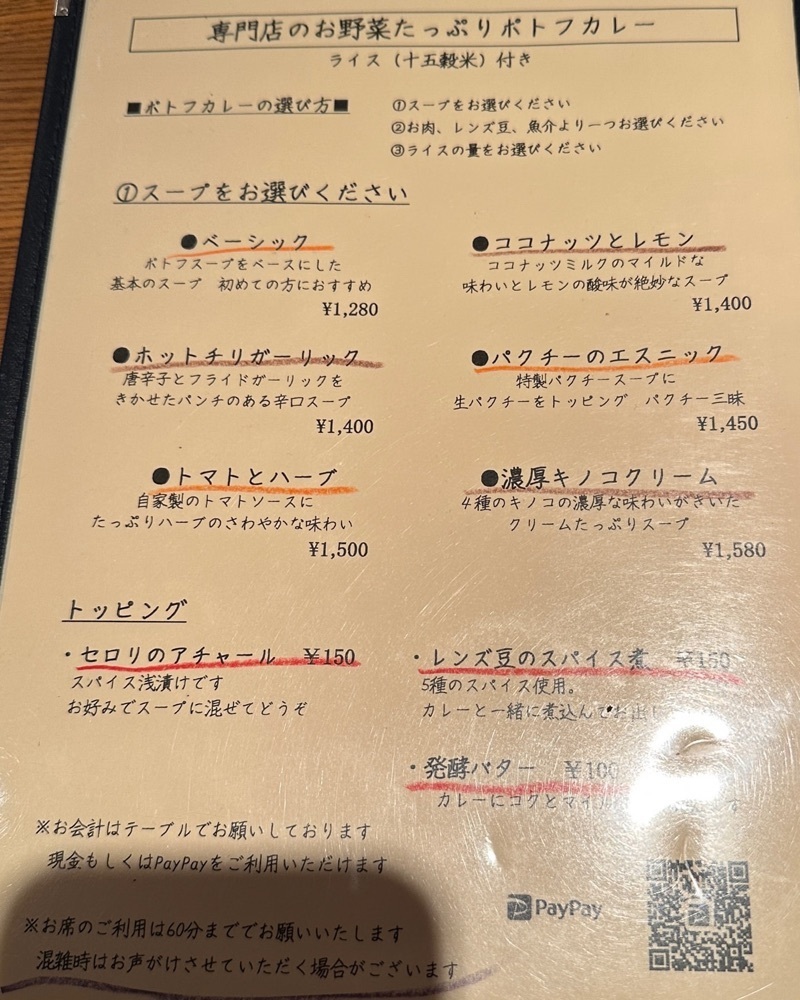 専門店のお野菜たっぷりポトフカレー
ライス（十五穀米）付き
■ポトフカレーの選び方■
①スープをお選びください
②お肉、レンズ豆、魚介より一つお選びください
③ライスの量をお選びください
①スープをお選びください
●ベーシック
ポトフスープをベースにした
基本のスープ　初めての方におすすめ
¥1,280
●ココナッツとレモン
ココナッツミルクのマイルドな
味わいとレモンの酸味が絶妙なスープ
¥1,400
●ホットチリガーリック
唐辛子とフライドガーリックを
きかせたパンチのある辛口スープ
¥1,400
●パクチーのエスニック
特製パクチースープに
生パクチーをトッピング　パクチー三昧
¥1,450
●トマトとハーブ
自家製のトマトソースに
たっぷりハーブのさわやかな味わい
¥1,500
●濃厚キノコクリーム
4種のキノコの濃厚な味わいがきいた
クリームたっぷりスープ
¥1,580
トッピング
・セロリのアチャール　¥150
スパイス浅漬けです
お好みでスープに混ぜてどうぞ
・レンズ豆のスパイス煮　¥150
5種のスパイス使用。
カレーと一緒に煮込んでお出し
・発酵バター　¥100
カレーにコクとマイル
※お会計はテーブルでお願いしております
現金もしくはPayPayをご利用いただけます
PayPay
※お席のご利用は60分まででお願いいたします
混雑時はお声がけさせていただく場合がございます